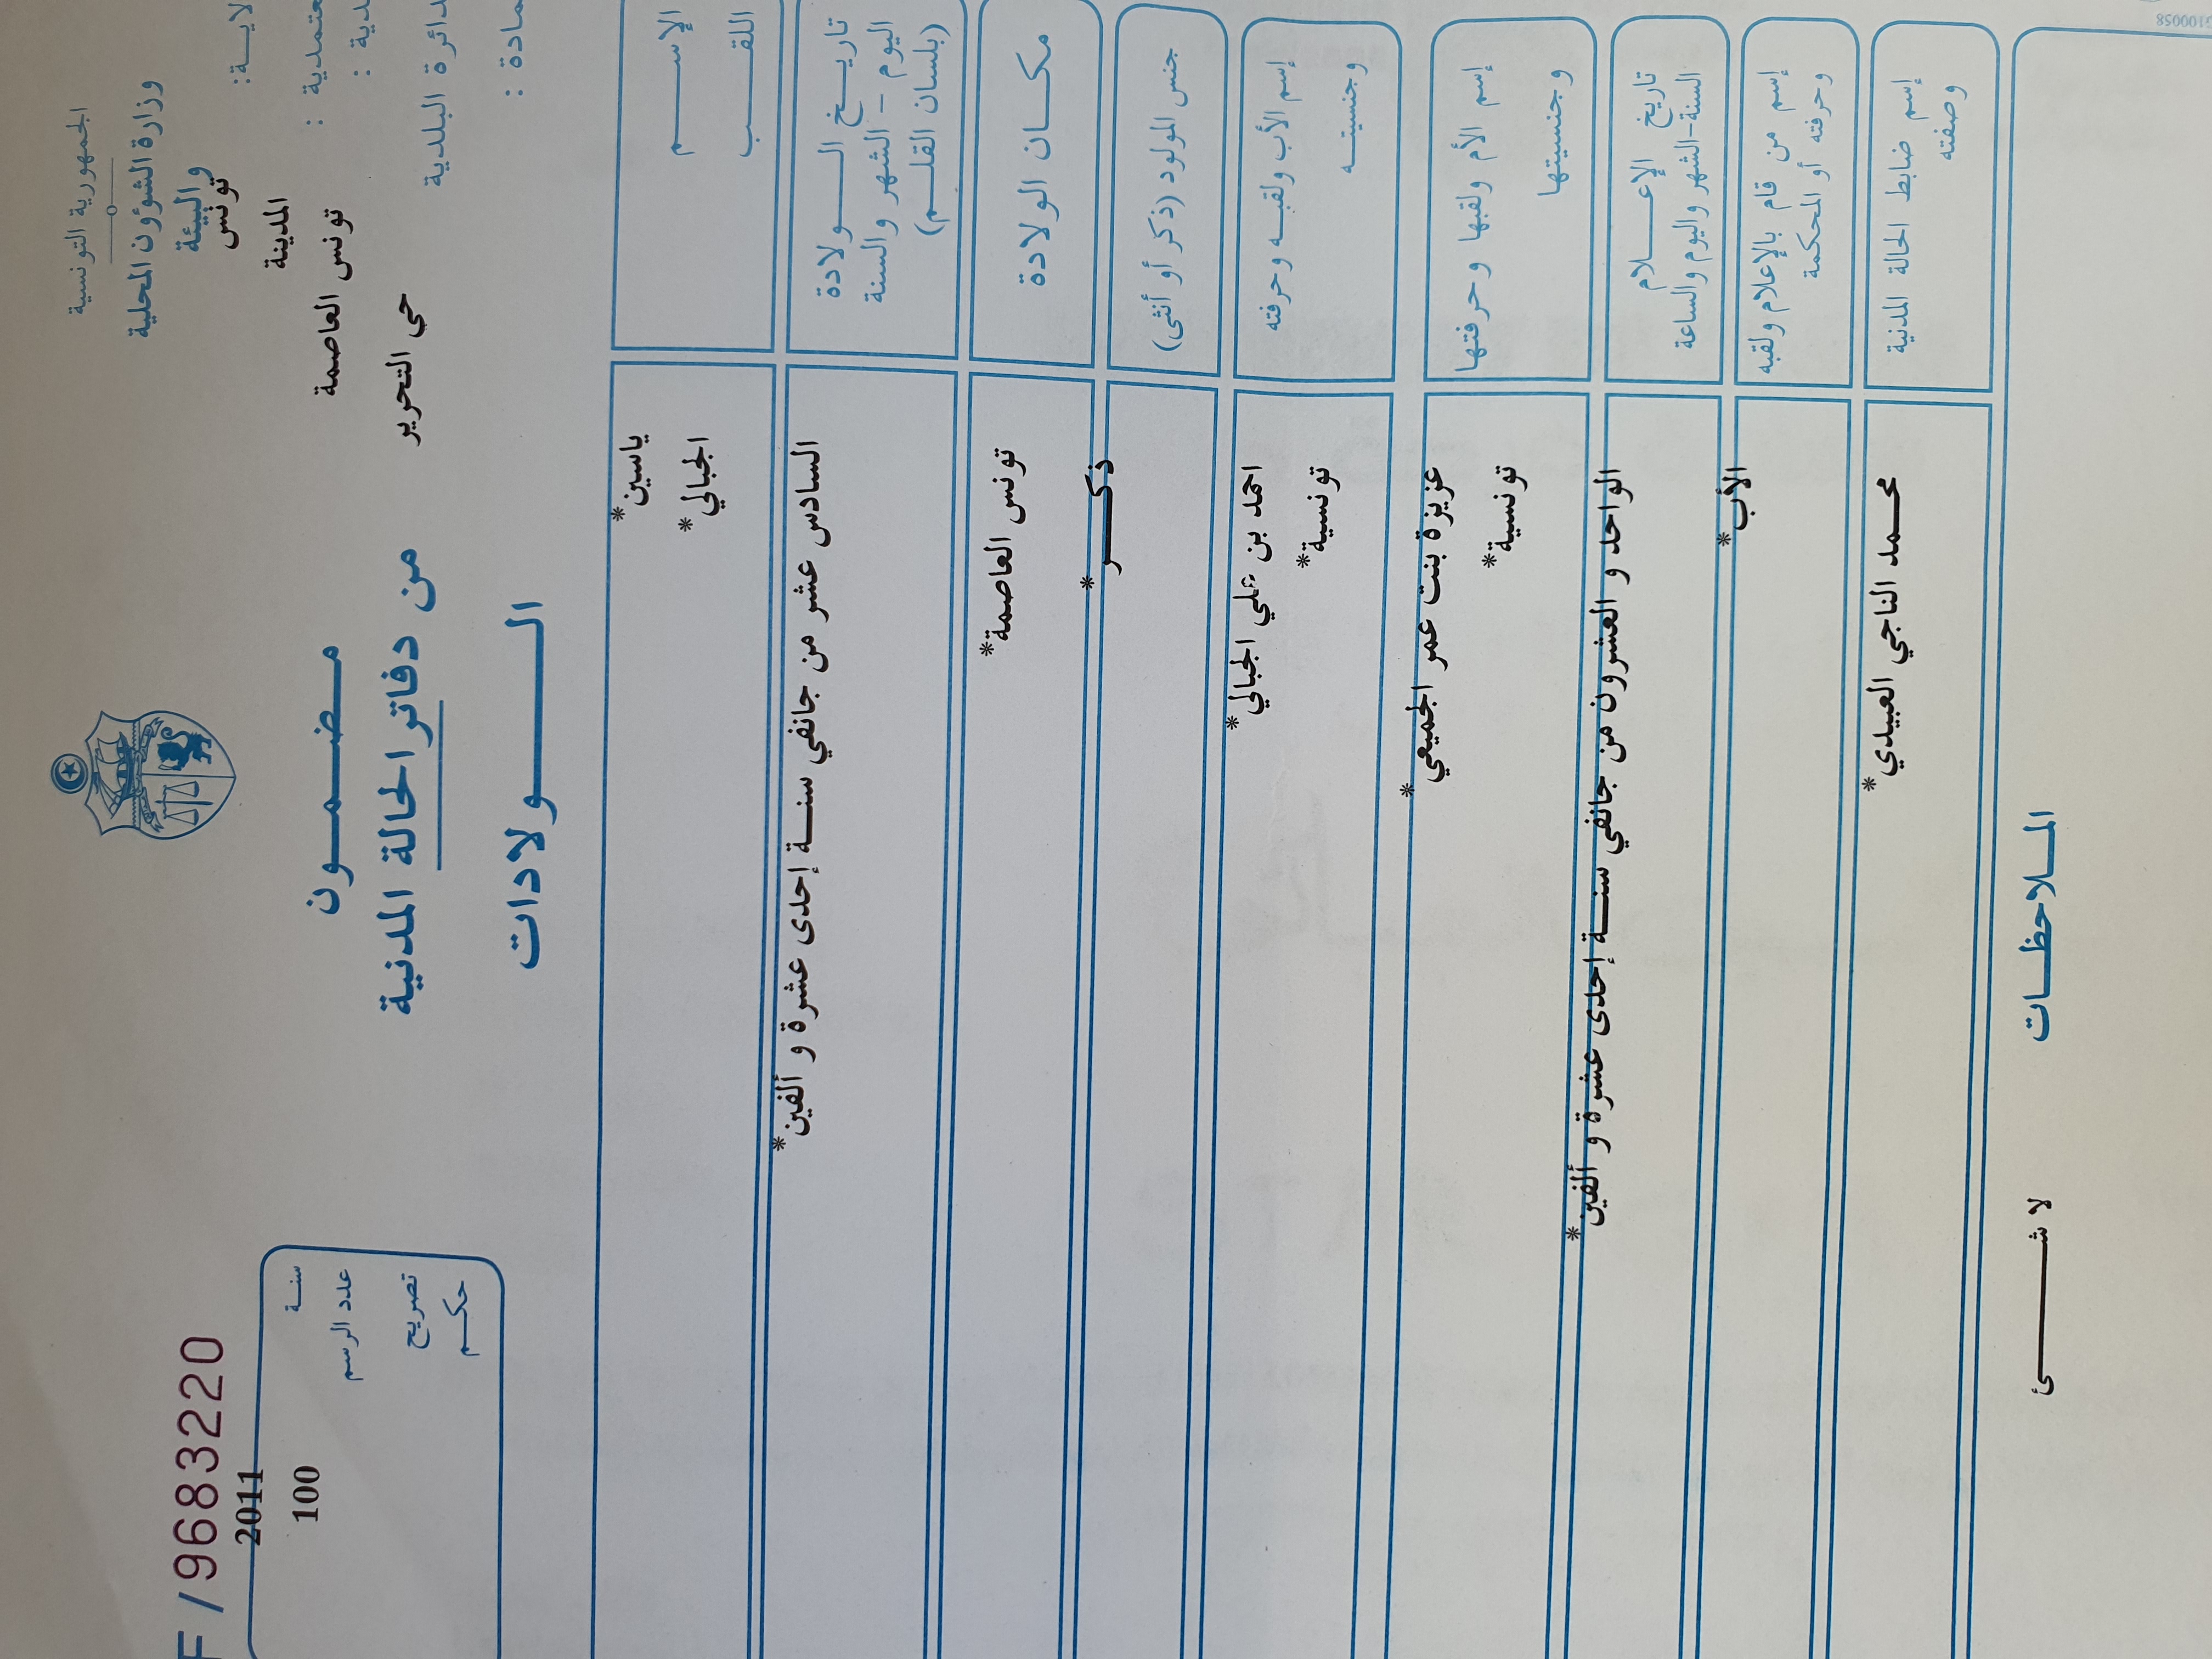 الجمهورية التونسية
وزارة الشؤون المحلية
والبيئة
تونس
المدينة
تونس العاصمة
حي التحرير
دائرة البلدية
مضمون
من دفاتر الحالة المدنية
الولادات
F / 9683220
سنة 2011
عدد الرسم 100
تصريح
حكم
الإسم
ياسين*
اللقب
الجبالي*
تاريخ الولادة
اليوم - الشهر والسنة
(بلسان القلم)
السادس عشر من جانفي سنة إحدى عشرة و ألفين*
مكان الولادة
تونس العاصمة*
جنس المولود (ذكر أو أنثى)
ذكر*
إسم الأب ولقبه وحرفته
وجنسيته
احمد بن الجبالي*
تونسية*
إسم الأم ولقبها وحرفتها
وجنسيتها
عزيزة بنت عمر الجميعي*
تونسية*
تاريخ الإعلام
السنة-الشهر واليوم والساعة
الواحد و العشرون من جانفي سنة إحدى عشرة و ألفين*
إسم من قام بالإعلام ولقبه
وحرفته أو المحكمة
الأب*
إسم ضابط الحالة المدنية
وصفته
محمد الناجي العبيدي*
الملاحظات
لا شئ